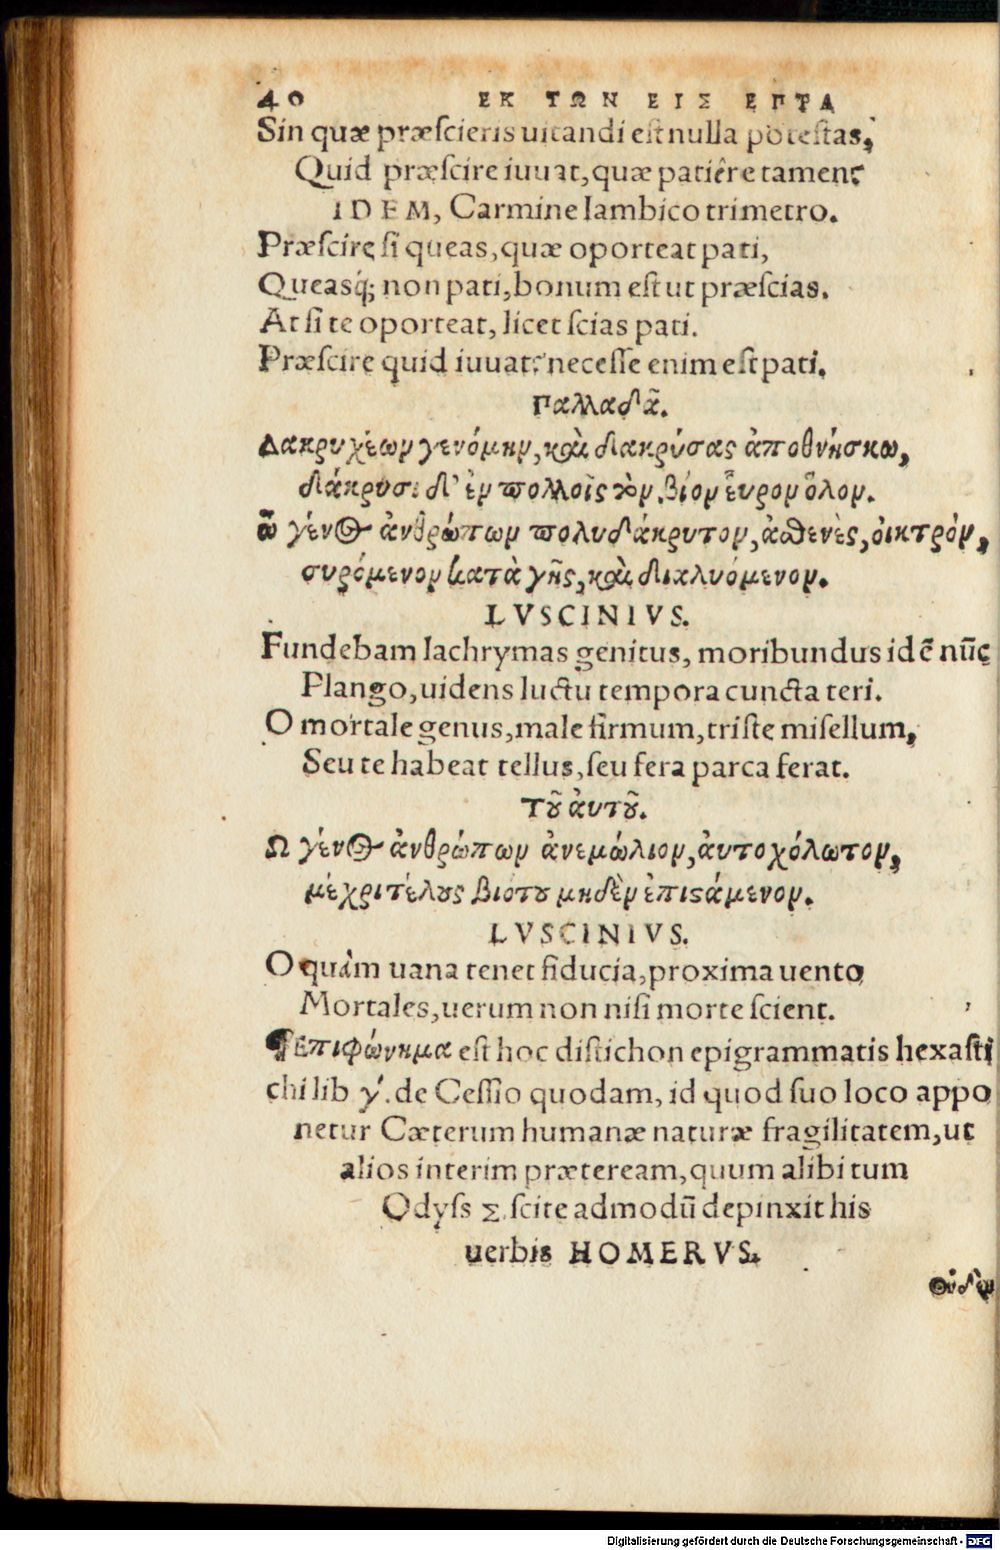 40 ΕΚ ΤΩΝ ΕΙΣ ΕΠΤΑ
Sin quæ præſcieris uitandi eſt nulla poteſtas,
Quid præſcire iuuat, quæ patiêre tamen?
IDEM, Carmine Iambico trimetro.
Præſcire ſi queas, quæ oporteat pati,
Queasq́; non pati, bonum eſt ut præſcias.
At ſi te oporteat, licet ſcias pati.
Præſcire quid iuuat? neceſſe enim eſt pati.
Παλλαδᾶ.
Δακρυχέων γενόμην, καὶ δακρύσας ἀποθνήσκω,
δάκρυσι δ' ἐν πολλοῖς τὸν βίον εὗρον ὅλον.
ὦ γένος ἀνθρώπων πολυδάκρυτον, ἀσθενὲς, οἰκτρὸν,
συρόμενον κατὰ γῆς, καὶ διαλυόμενον.
LVSCINIVS.
Fundebam lachrymas genitus, moribundus idẽ nũc
Plango, uidens luctu tempora cuncta teri.
O mortale genus, male firmum, triſte miſellum,
Seu te habeat tellus, ſeu fera parca ferat.
Τοῦ ἀυτοῦ.
Ω γένος ἀνθρώπων ἀνεμώλιον, ἀυτοχόλωτον,
μέχρι τέλους βιότου μηδὲν ἐπιστάμενον.
LVSCINIVS.
O quàm uana tenet fiducia, proxima uento
Mortales, uerum non niſi morte ſcient.
¶Επιφώνημα eſt hoc diſtichon epigrammatis hexaſti
chi lib γ'. de Ceſſio quodam, id quod ſuo loco appo
netur Cæterum humanæ naturæ fragilitatem, ut
alios interim præteream, quum alibi tum
Odyſs Σ. ſcite admodũ depinxit his
uerbis HOMERVS.
Οὐδὲν
Digitalisierung gefördert durch die Deutsche Forschungsgemeinschaft - DFG